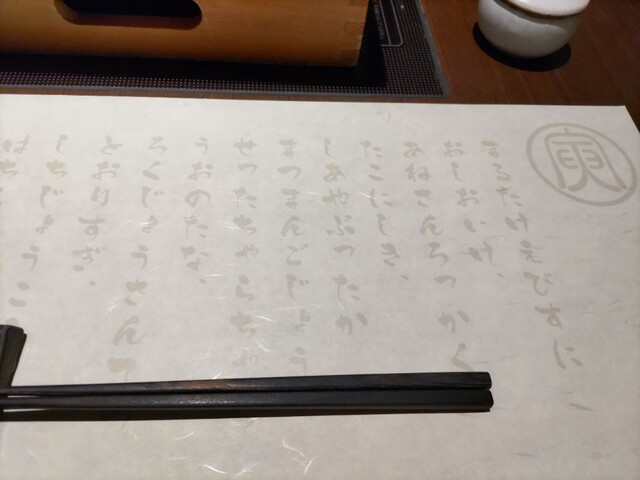 まるたけえびすに
おしおいけ、
あねさんろっかく
たこにしき、
しあやぶったか
まつまんごじょう
せったちゃらちゃ
うおのたな、
ろくじょうさんて
とおりすぎ、
しちじょう
はち